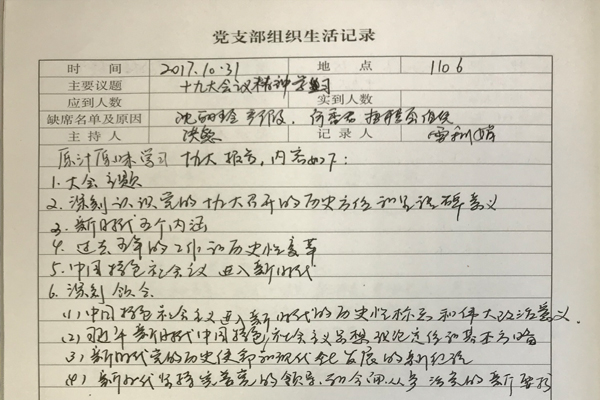 党支部组织生活记录
时 间 2017.10.31 地 点 1106
主要议题 十九大会议精神学习
应到人数 实到人数
缺席名单及原因
主 持 人 记 录 人
原汁原味学习十九大报告,内容如下:
1.大会主题
2.深刻认识党的十九大召开的历史方位和里程碑意义
3.新时代五个内涵
4.过去五年的工作和历史性变革
5.中国特色社会主义进入新时代
6.深刻领会
(1)中国特色社会主义进入新时代的历史性标志和伟大政治意义.
(2) 新时代中国特色社会主义思想
(3)新时代党的历史使命和现代化发展的新
(4)新时代坚持党的领导、 从严治党的新要求